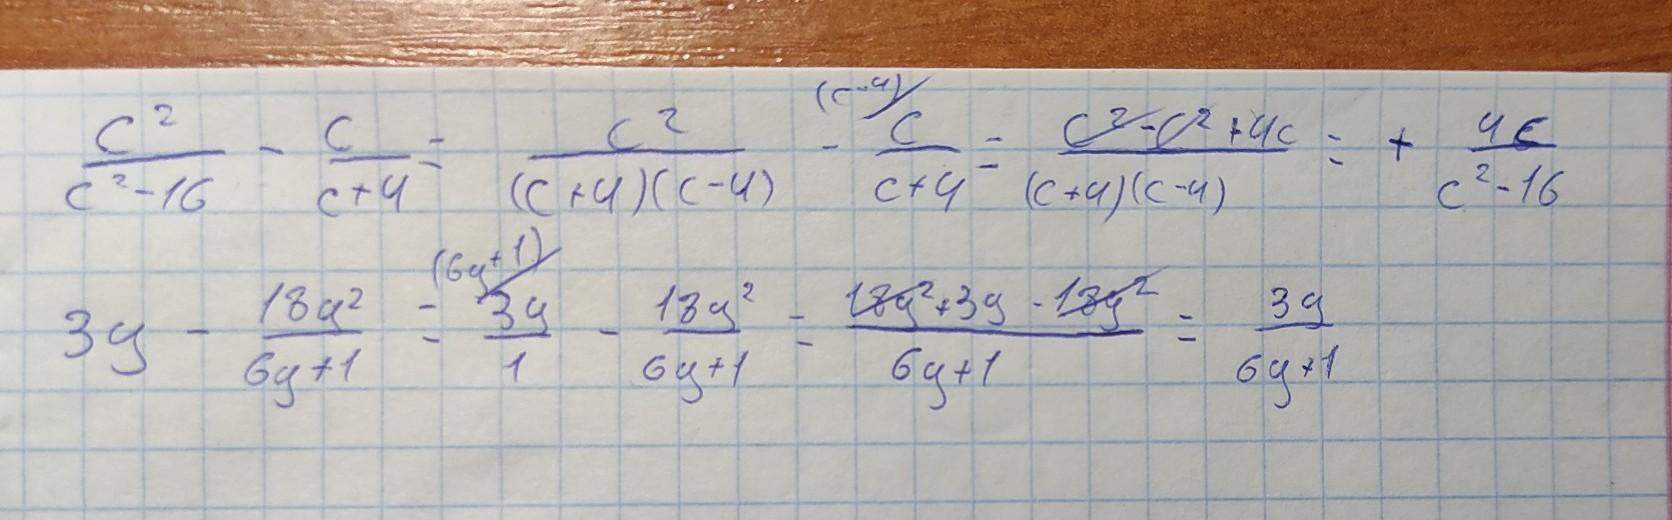 c²/(c²-16) - c/(c+4) = c²/((c+4)(c-4)) - (c-4)/ c/(c+4) = (c²-c²+4c)/((c+4)(c-4)) = + 4c/(c²-16)
3y - 18y²/(6y+1) = (6y+1)/ 3y/1 - 18y²/(6y+1) = (18y²+3y-18y²)/(6y+1) = 3y/(6y+1)